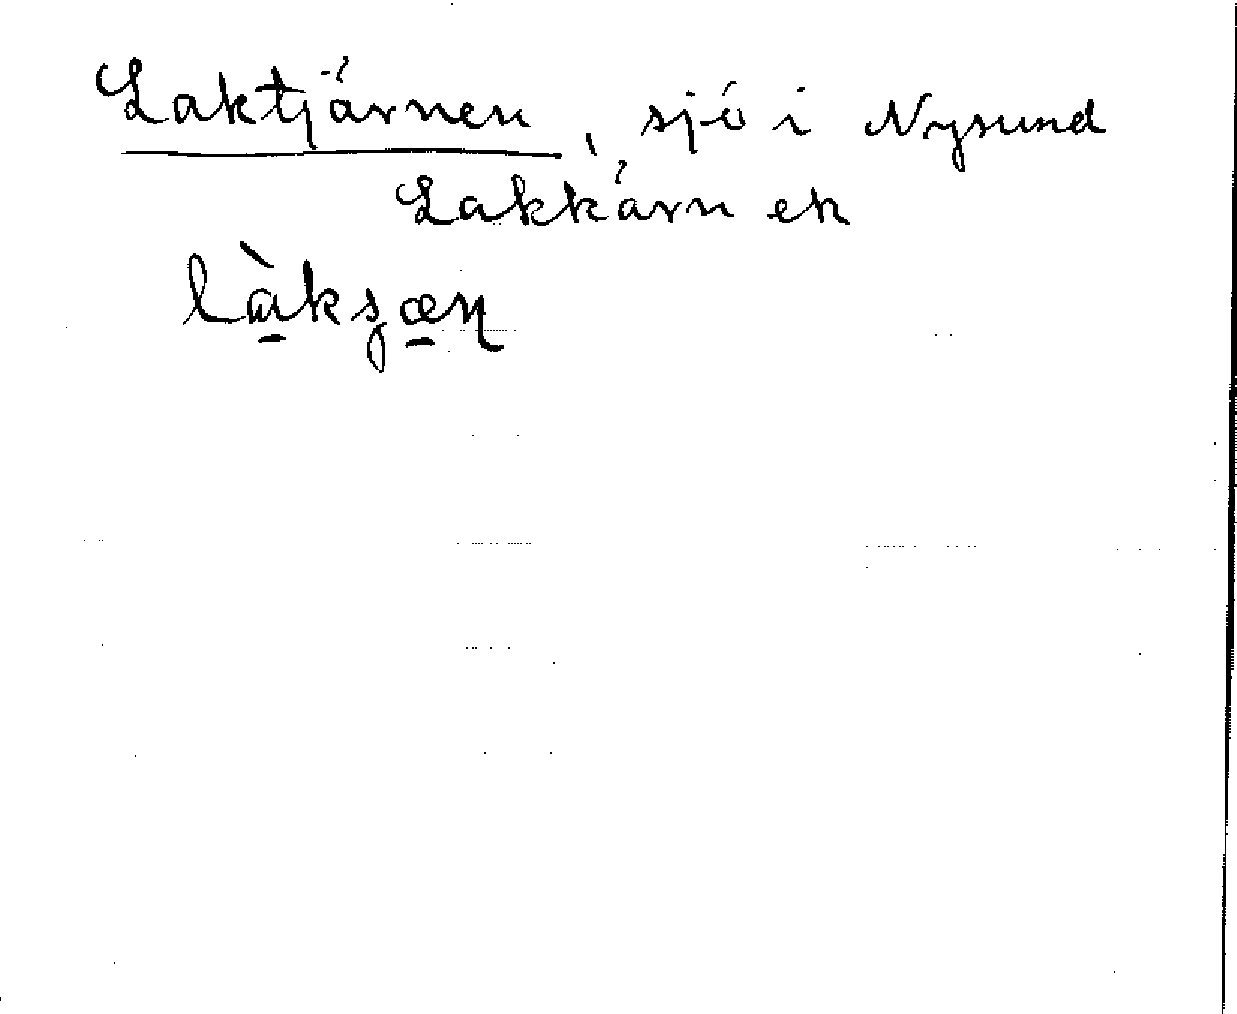 Laktjärnen, sjö i Nysund
Lakkärn ek
là̱kʂæ̱ɳ